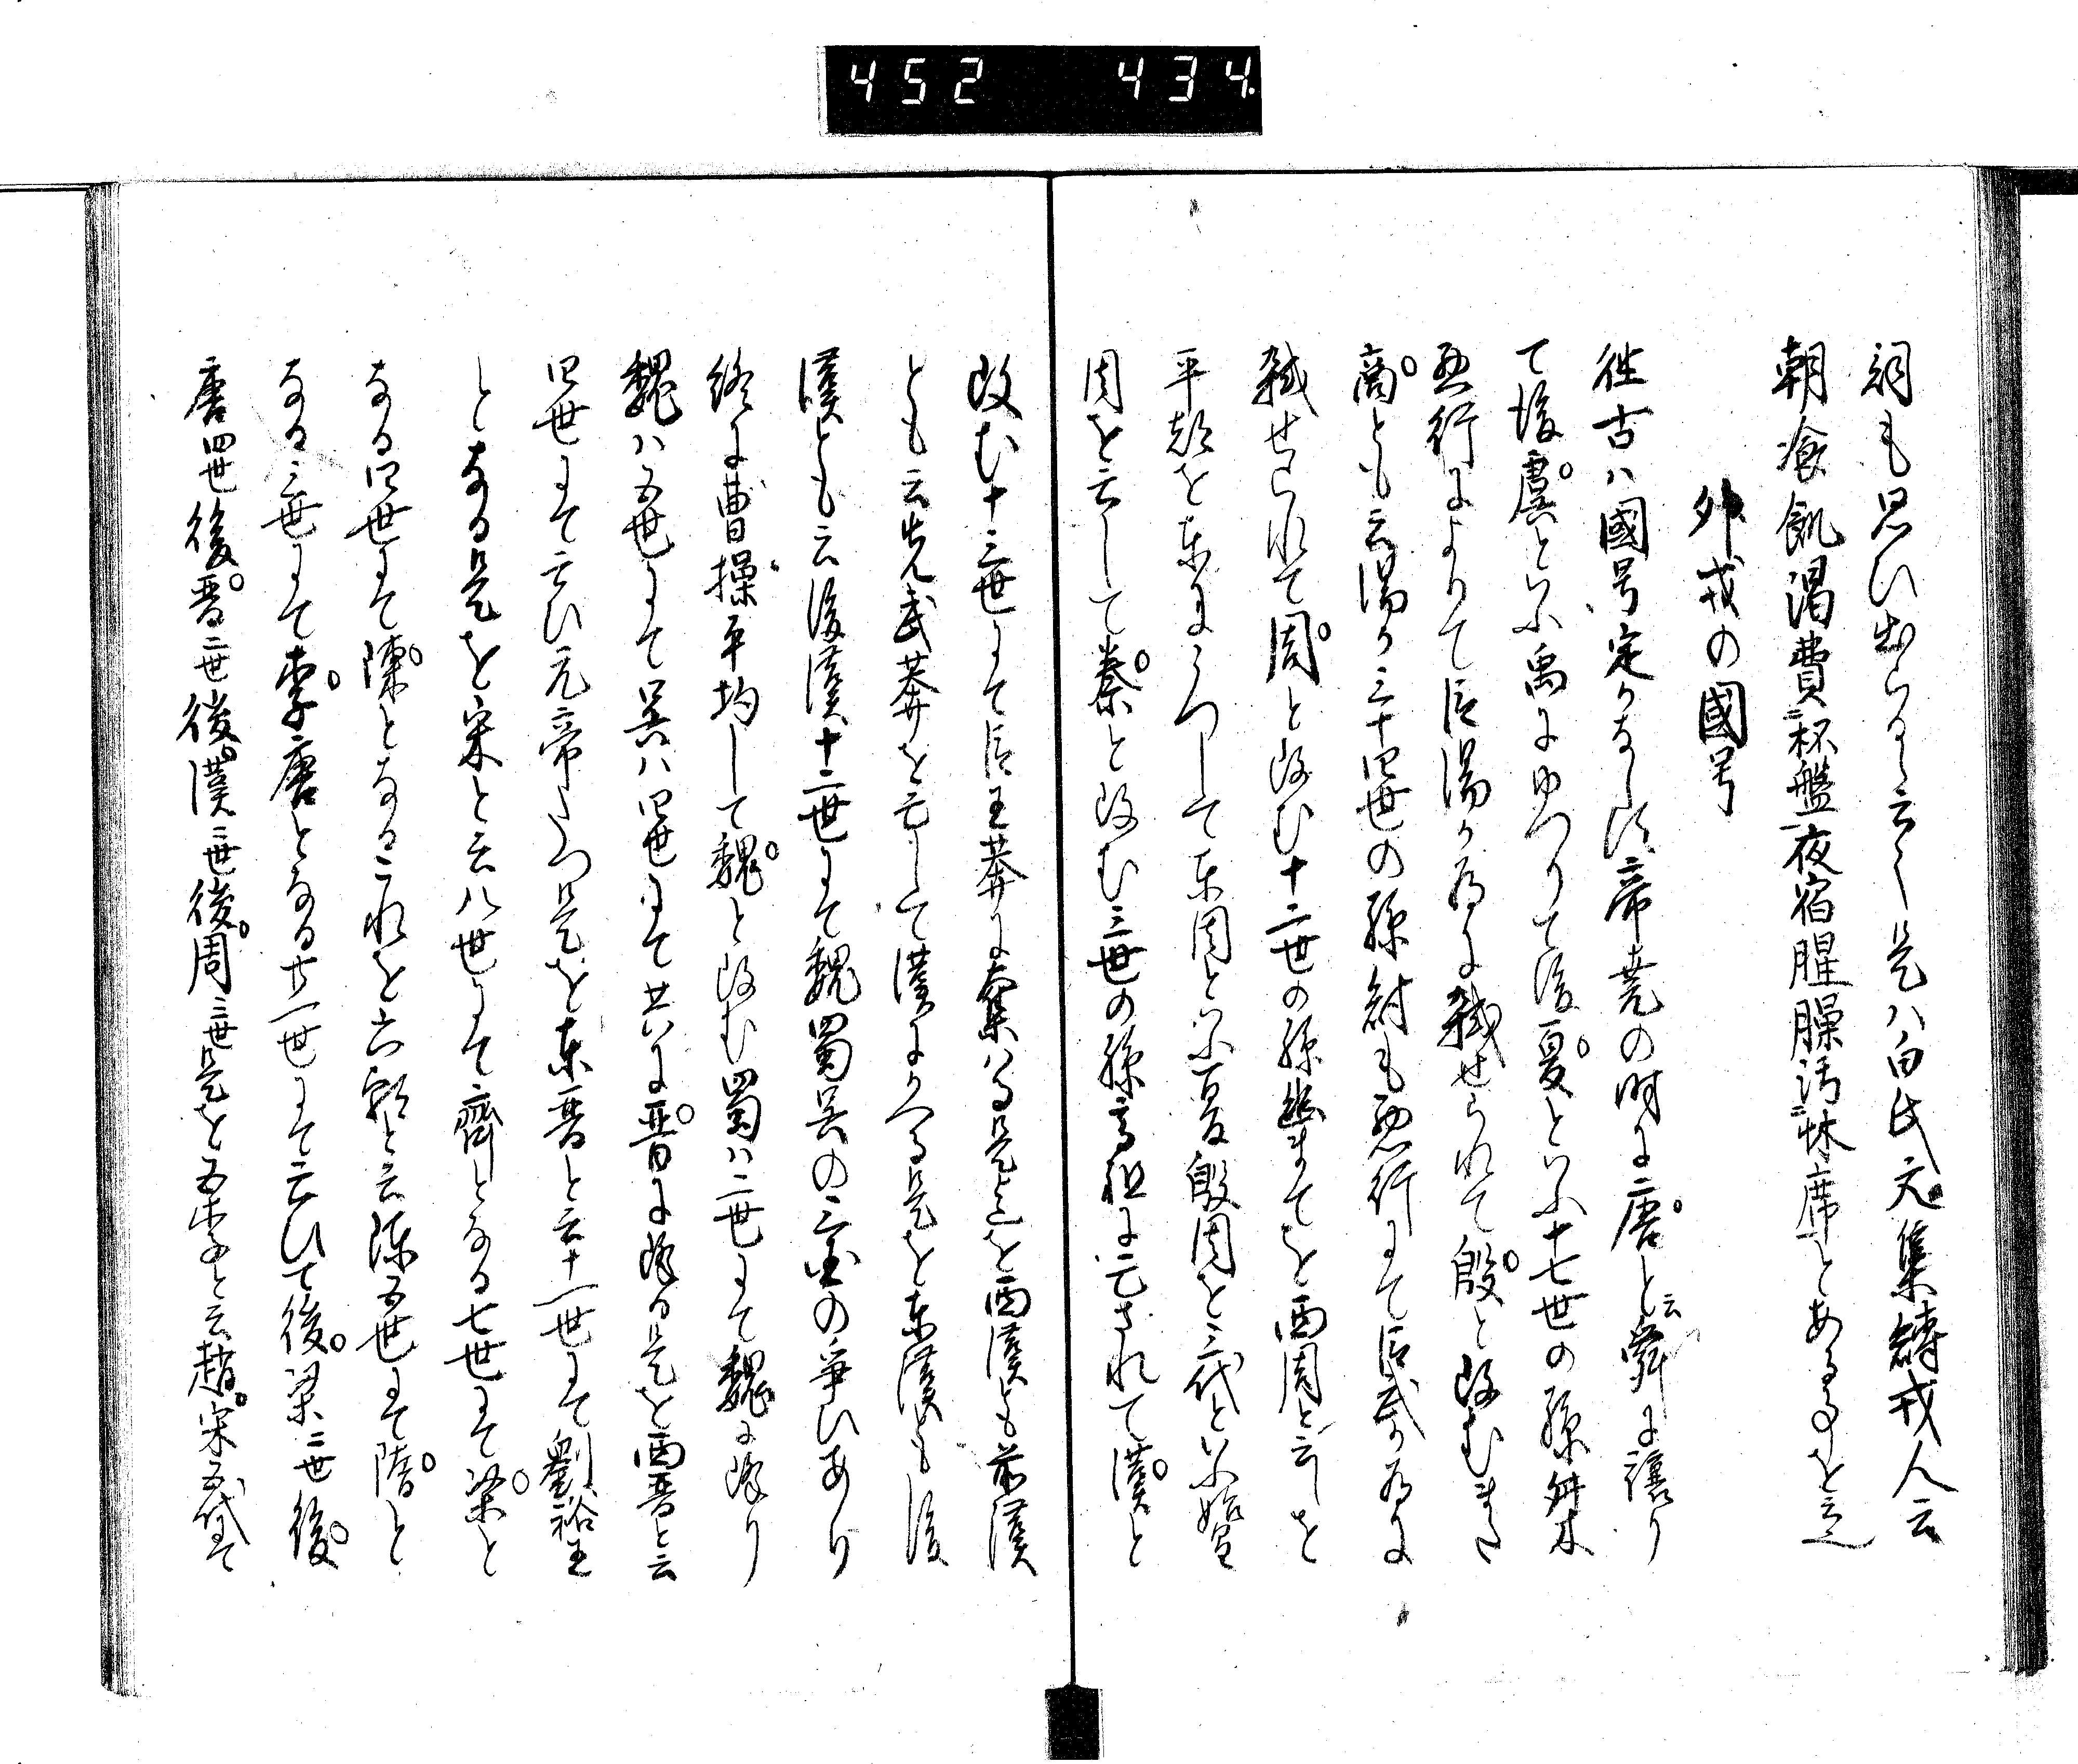 452 434
詞も思ひ出らるゝ云々是ハ白氏文集縛戎人云
朝飡飢渇費二杯盤一夜宿腥臊汚二牀席一とあるを云
外戎の國号
徃古ハ國号定りなし帝尭の時に唐と云舜に禪り
て後虞といふ禹にゆつりて後夏といふ十七世の孫桀
悪行によりて臣湯か為に弑せられて殷と改む
商とも云湯より三十四世の孫紂も悪行にて臣武か為に
弑せられて周と改む十二世の孫幽まてを西周と云
平都を東にうつして東周といふ夏殷周を三代といふ始皇
周を亡して秦と改む三世の孫高祖に亡されて漢と
改む十三世にて臣王莽に奪ハる是迄を西漢とも前漢
とも云光武莽を亡して漢にかへる是を東漢とも後
漢とも云後漢十二世にて魏蜀呉の三国の爭ひあり
終に曹操平均して魏と改む蜀ハ二世にて魏に降り
魏ハ五世にて呉ハ四世にて共に晋に降る是を西晋と云
四世にて亡ひ元帝たつ是を東晋と云十一世にて劉裕王
となる是を宋と云八世にて齊となる七世にて梁と
なる四世にて陳となるこれを六朝と云陳五世にて隋と
なる三世にて李唐となる廿一世にて亡ひて後梁二世後
唐四世後晋二世後漢二世後周三世是を五季と云趙宋五代にて